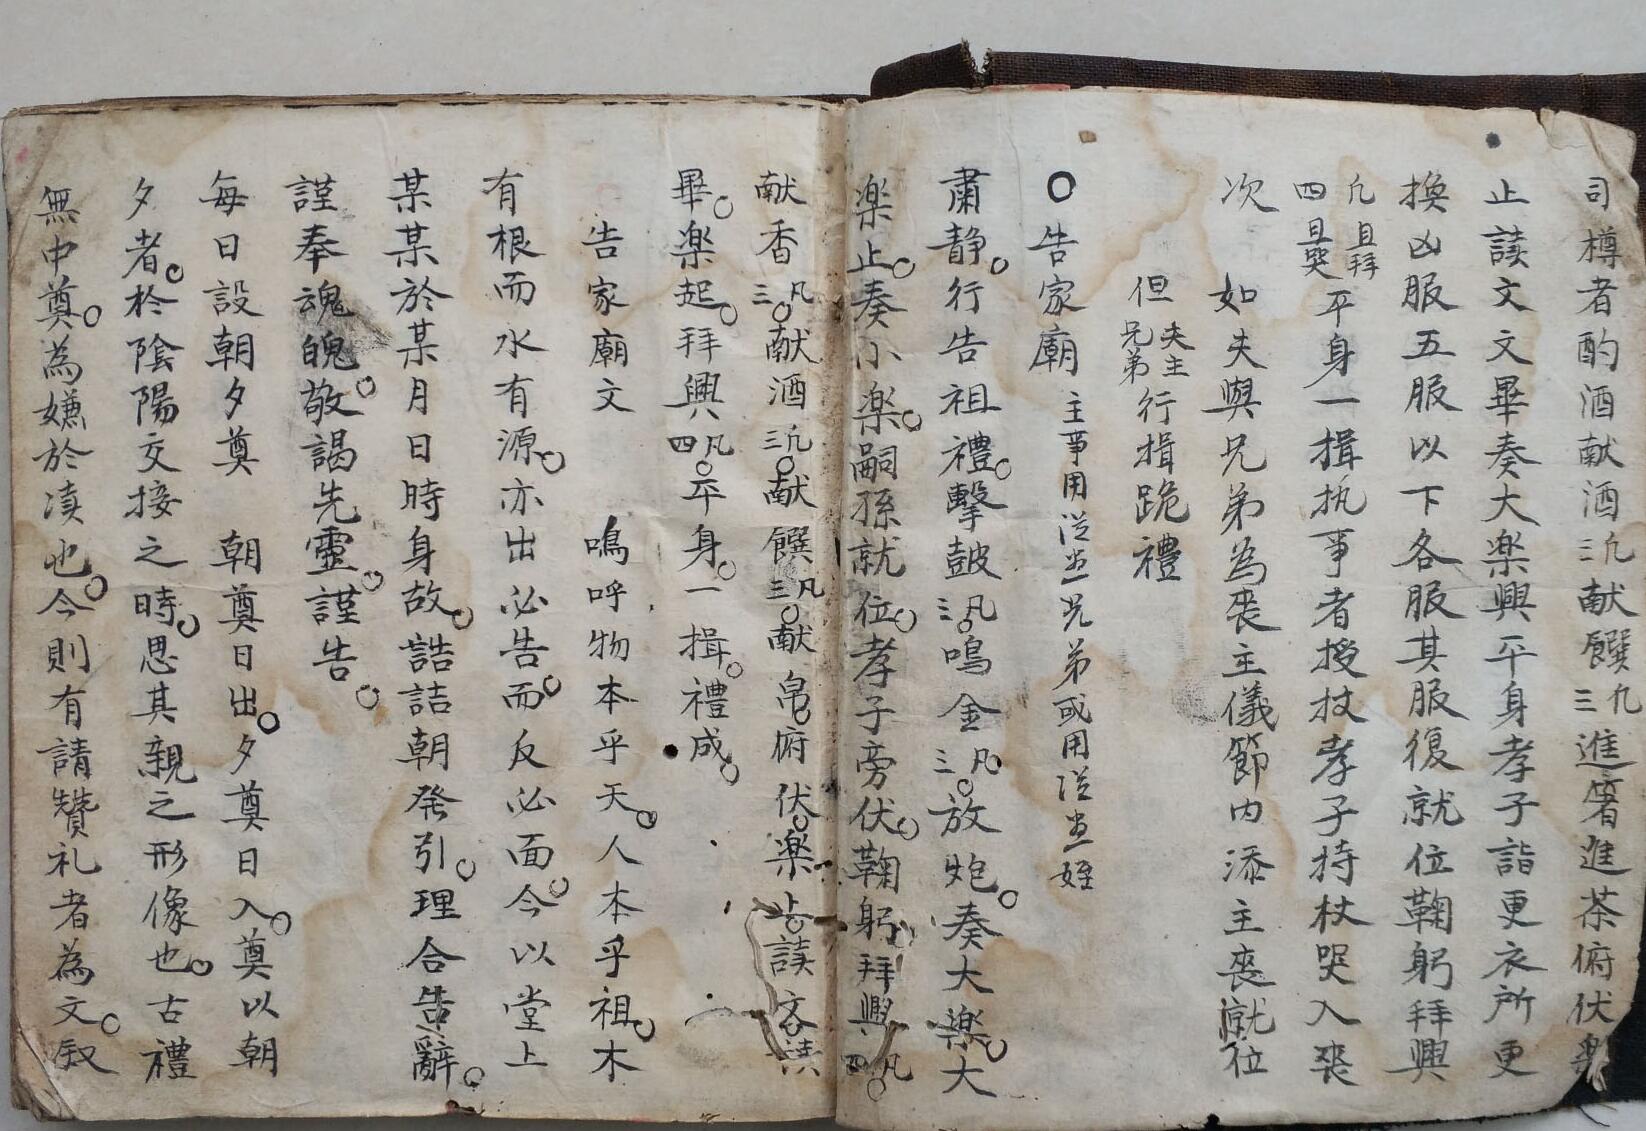 司樽者酌酒献酒三凢献饌三凢進箸進茶俯伏楽
止讀文文畢奏大楽興平身孝子詣更衣所更
換凶服五服以下各服其服復就位鞠躬拜興
四凢且哭且拜平身一揖执事者授杖孝子持杖哭入喪
次　如夫與兄弟為丧主儀節内添主丧就位
但夫主兄弟行揖跪禮
○告家廟主事用從堂兄弟或用從堂姪
肅静行告祖禮擊鼓三凢鳴金三凢放炮奏大楽大
楽止奏小楽嗣孫就位孝子旁伏鞠躬拜興四凢
献香三凢献酒三凢献饌三凢献帛俯伏楽止讀客讀
畢楽起拜興四凢平身一揖禮成
告家廟文　嗚呼物本乎天人本乎祖木
有根而水有源亦出必告而反必面今以堂上
某某於某月日時身故詰朝発引理合告辭
謹奉魂魄敬謁先靈謹告
每日設朝夕奠　朝奠日出夕奠日入奠以朝
夕者於陰陽交接之時思其親之形像也古禮
無中奠為嫌於凟也今則有請贊礼者為文叙